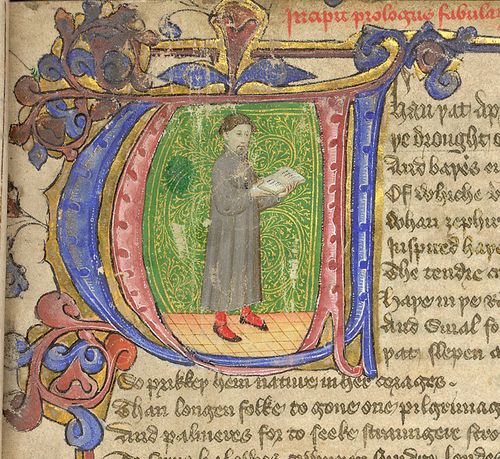 Incipit prologus fabula
Whan þat Ap
þe drought o
And baþes e
Of whiche v
Whan zephir
Inspired haþe
The tendre c
Haþe in þe
And smal fo
þat slepen a
So prikkeþ hem nature in her corages.
Than longen folke to gone one pilgrimag
And palmeres for to seeke straungere stro